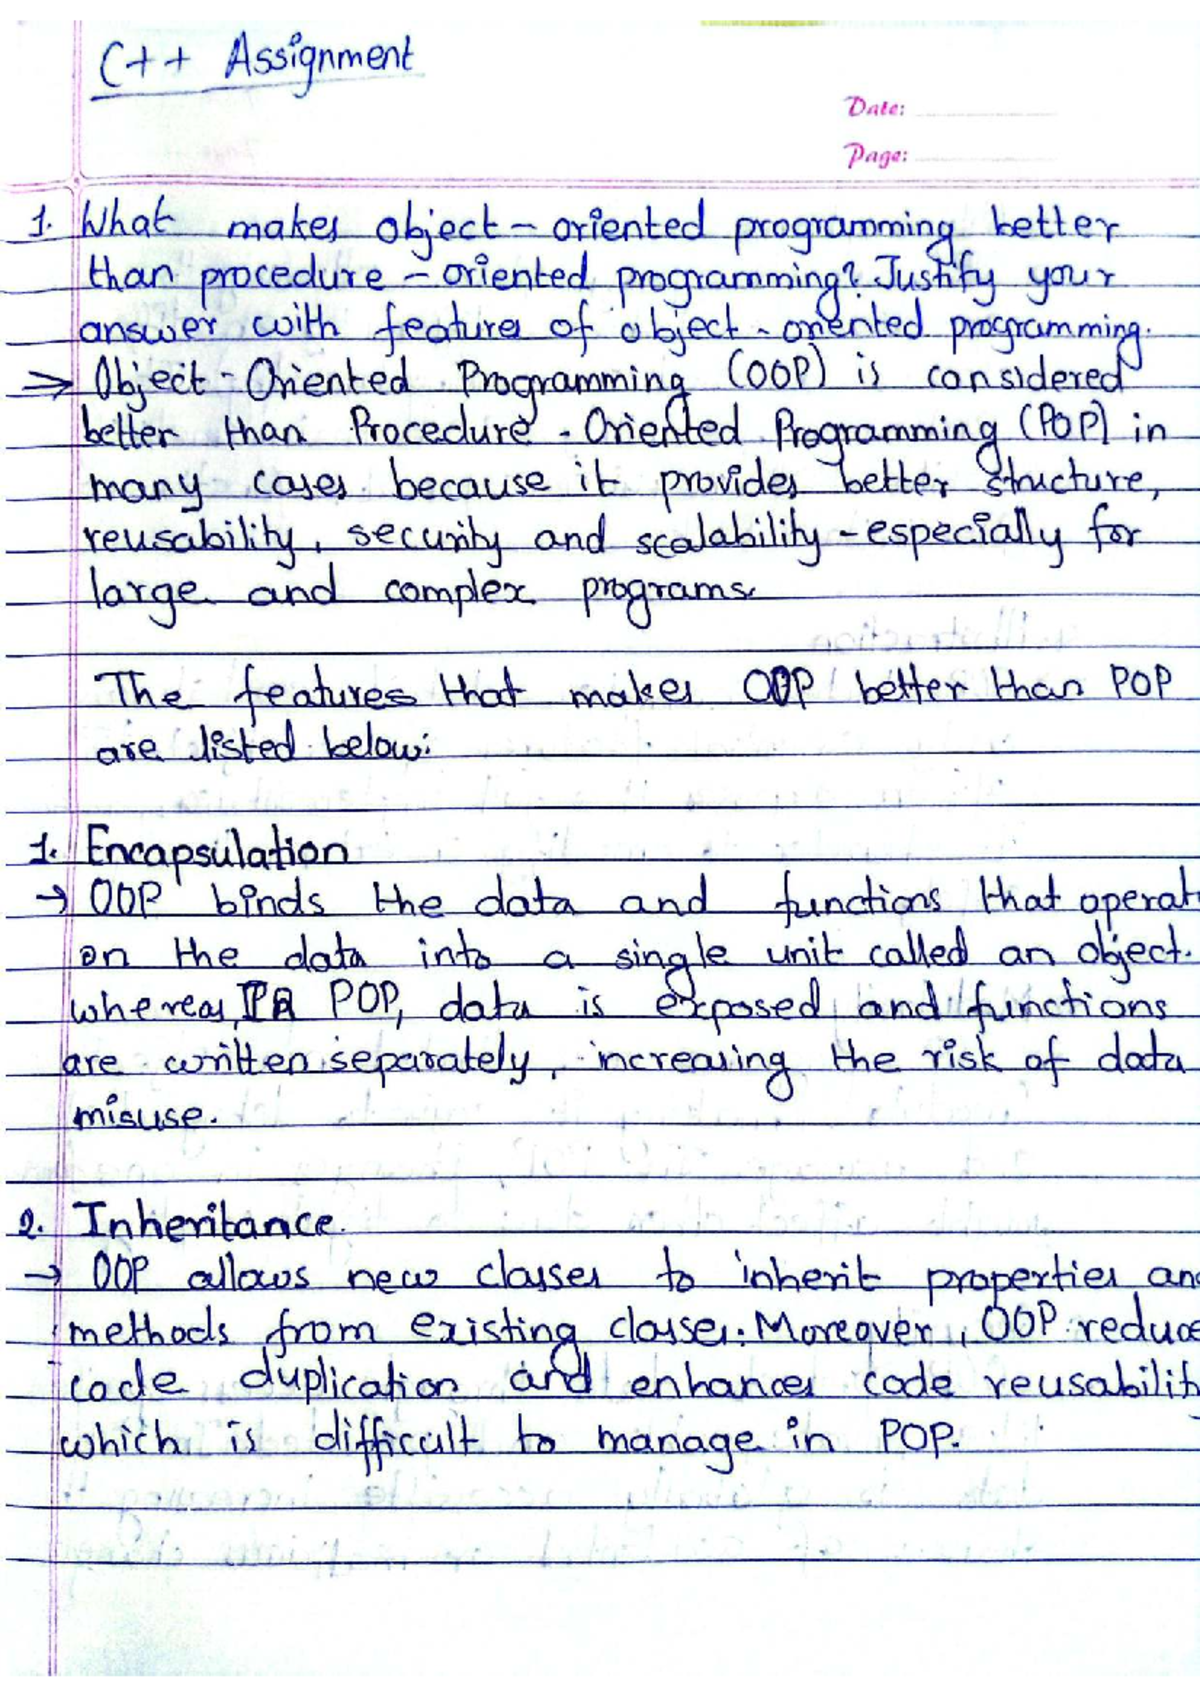 C++ Assignment
Date:
Page:
1. What makes object-oriented programming better
than procedure-oriented programming? Justify your
answer with features of object-oriented programming.
⇒ Object-Oriented Programming (OOP) is considered
better than Procedure-Oriented Programming (POP) in
many cases because it provides better structure,
reusability, security and scalability - especially for
large and complex programs.
The features that makes OOP better than POP
are listed below:
1. Encapsulation
→ OOP binds the data and functions that operat
on the data into a single unit called an object.
whereas, In POP, data is exposed and functions
are written separately, increasing the risk of data
misuse.
2. Inheritance.
→ OOP allows new classes to inherit properties and
methods from existing classes. Moreover, OOP reduce
code duplication and enhances code reusabilit
which is difficult to manage in POP.